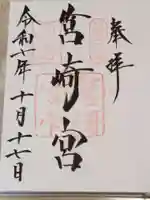 奉拝
宮崎宮
令和七年十月十七日